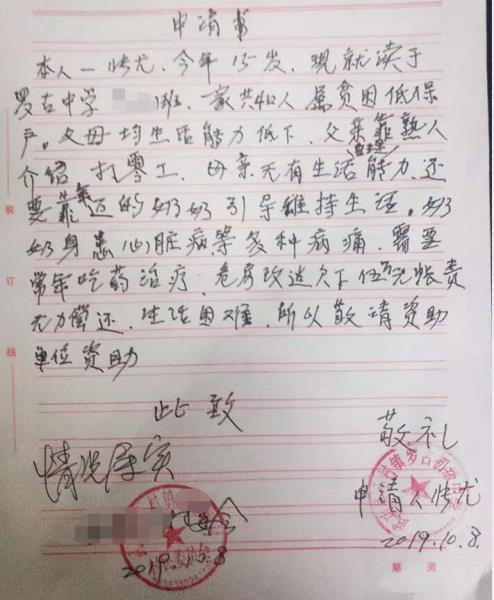 申请书
本人一忧尤、今年15岁、现就读于
罗古中学 班、家共4口人 属贫困低保
户。父母均生活能力低下、父亲靠熟人
介绍 打零工、母亲无有生活自理能力、还
要靠年迈的奶奶引导维持生活。奶
奶身患心脏病等多种病痛、需要
常年吃药治疗、危房改造欠下伍万元帐责
无力偿还、生活困难、所以敬请资助
单位资助
此致
敬礼
情况属实
申请人
2019.10.8
2019.10.8.
装
订
线
第 页